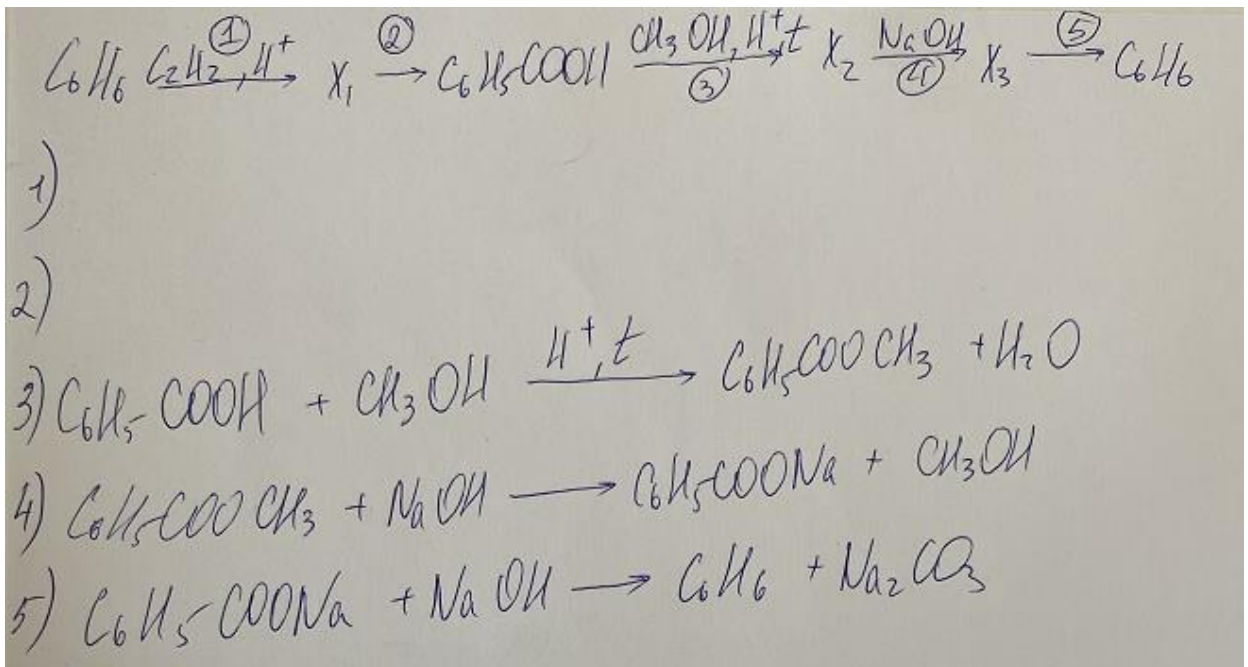 C₆H₆ —①C₂H₂, H⁺→ X₁ —②→ C₆H₅COOH —CH₃OH, H⁺, t ③→ X₂ —NaOH ④→ X₃ —⑤→ C₆H₆
1)
2)
3) C₆H₅-COOH + CH₃OH —H⁺, t→ C₆H₅COOCH₃ + H₂O
4) C₆H₅-COOCH₃ + NaOH → C₆H₅COONa + CH₃OH
5) C₆H₅-COONa + NaOH → C₆H₆ + Na₂CO₃